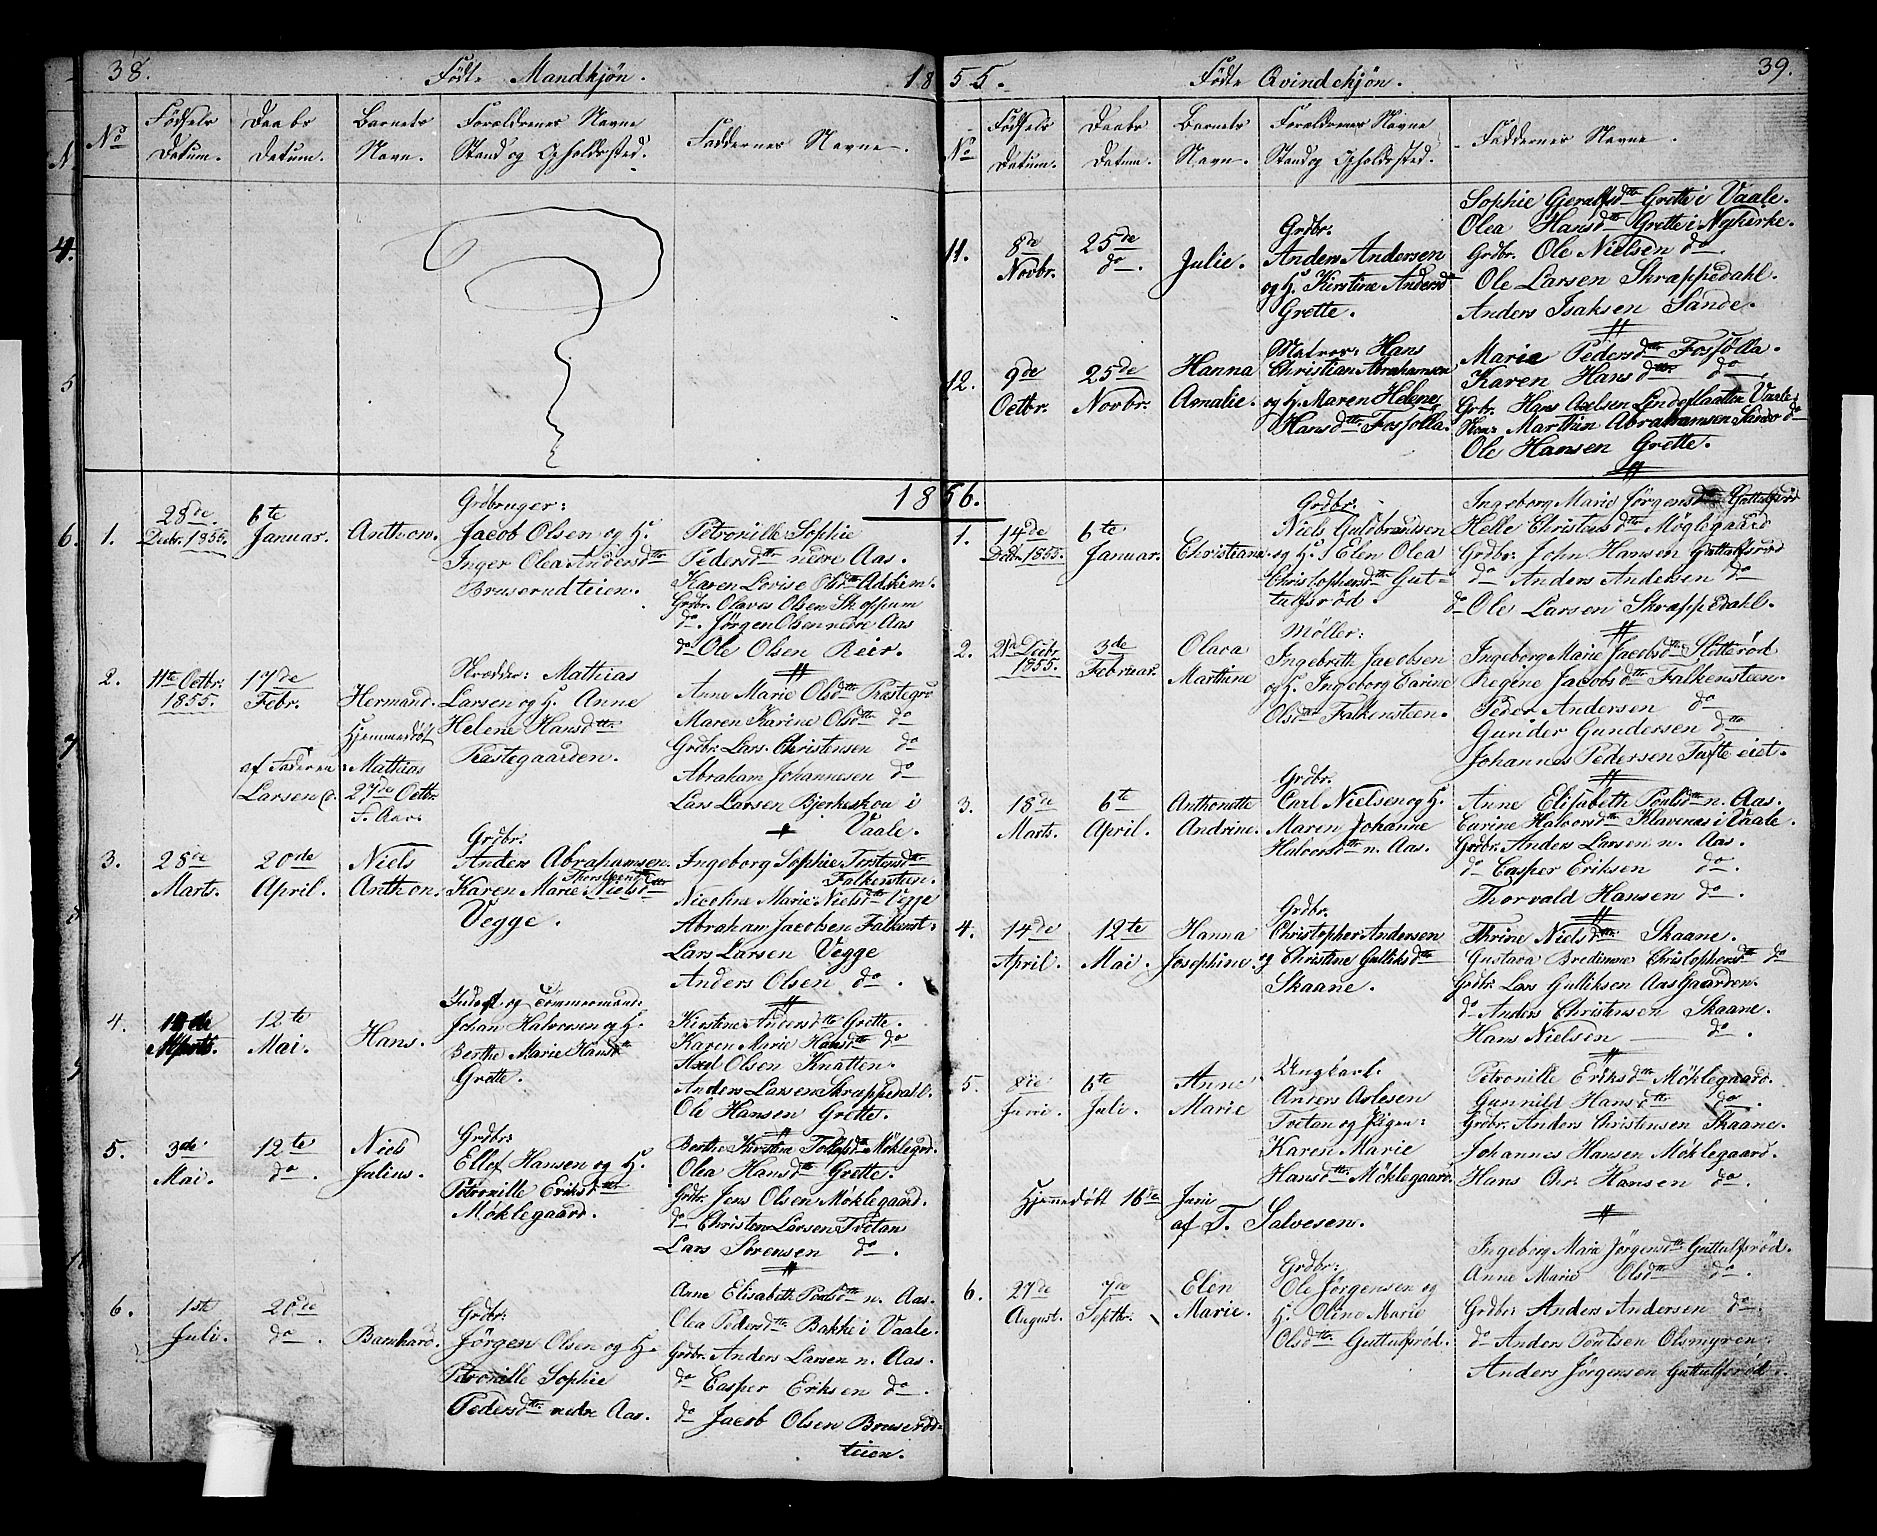 38.
Födte Mandkjön.
18
No
Födsels
Datum.
Daabs
Datum.
Barnets
Navn.
Forældrenes Navne
Stand og Opholdssted.
Faddernes Navne.
1.
28de
Decbr. 1855.
6te
Januar.
Anthon.
Grdbruger:
Jacob Olsen og H.
Inger Olea Andersdtte
Bruserudteien.
Petronille Sophie
Pedersdtte nedre Aas.
Karen Lovise Olsdtte Adskem.
Grdbr. Olaves Olsen Skoppum
do. Jørgen Olsen nedre Aas
do Ole Olsen Reir.
2.
11te Octbr.
1855.
17de
Febr.
Hermand.
Hjemmedöbt
af Faderen: Mathias
Larsen d. 27de Octbr.
F. Aar.
Skrædder: Mathias
Larsen og H. Anne
Helene Hansdtte
Præstegaarden.
Anne Marie Olsdtte Præstegrd
Maren Karine Olsdtte do
Grdbr. Lars Christensen do
Abraham Johannesen do
Lars Larsen Bjerkeskou i
Vaale.
3.
28de
Marts.
20de
April.
Niels
Anthon.
Grdbr.
Anders Abrahamsen.
Karen Marie Nielsdtter
Vegge.
Ingeborg Sophie Torstensdtte
Falkensteen.
Nicoline Marie Nielsdtte Vegge
Abraham Jacobsen Falkenst:
Lars Larsen Vegge
Anders Olsen do.
4.
Marts.
12te
Mai.
Hans.
Inderst og Tömmermand:
Johan Halvorsen og H.
Berthe Marie Hansdtt
Grette.
Kirstine Andersdtte Grette.
Karen Marie Hansdtte do
Axel Olsen Knatten.
Anders Larsen Skræppedal.
Ole Hansen Grette.
5.
3de
Mai.
12te
do.
Niels
Julius.
Grdbr:
Ellef Hansen og H.
Petronille Eriksdtte
Møklegaard.
Berthe Kirstine Tollefsdtt Møklegrd.
Olea Hansdtte Grette.
Grdbr. Jens Olsen Møklegaard.
do Christen Larsen Tvetan
Lars Sørensen do.
6.
1ste
Juli.
20de
do.
Barnhard.
Grdbr:
Jørgen Olsen og H.
Petronille Sophie
Pedersdtte nedre Aas.
Anne Elisabeth Poulsdtte n. Aas.
Olea Pedersdtte Bakke i Vaale.
Grdbr. Anders Larsen n. Aas.
do Casper Eriksen do.
do Jacob Olsen Bruserød-
teien.
55.
Födte Qvindekjön.
39.
No
Födsels
Datum.
Daabs
Datum.
Barnets
Navn.
Forældrenes Navne
Stand og Opholdssted.
Faddernes Navne.
11.
8de
Novbr.
25de
do.
Julie.
Grdbr:
Anders Andersen
og H. Kirstine Andersd
Grette.
Sophie Gjeralfsdtte Grette i Vaale.
Olea Hansdtt Grette i Nykirke.
Grdbr. Ole Nielsen do.
Ole Larsen Skræppedahl.
Anders Isaksen Sande.
12.
9de
Octbr.
25de
Novbr.
Hanna
Amalie.
Matros: Hans
Christian Abrahamsen
og H. Maren Helene
Hansdtte Fosfolla.
Marie Pedersdtte Fosfolla.
Karen Hansdtte do
Grbr. Hans Axelsen Lindeslaatten Vaale.
Marthin Abrahamsen Sande do
Ole Hansen Grette.
1856.
1.
14de
Decbr. 1855.
6te
Januar.
Christiane.
Grdbr:
Niels Guldbrandsen
og H. Elen Olea
Christophersdtte Gut-
tulfsrød.
Ingeborg Marie Jørgensdtte Guttulfsrød
Helle Christensdtte Møglegaard
Grdbr: John Hansen Guttulfsrød
do Anders Andersen do
do Ole Larsen Skræppedahl.
2.
Decbr.
1855.
3de
Februar.
Olava
Marthine
Møller:
Ingebreth Jacobsen
og H. Ingeborg Carine
Olsdtte Falkensteen.
Ingeborg Marie Jacobsdtte Slotterød
Regine Jacobsdtte Falkensteen.
Peder Andersen do
Gunder Gundersen dtto
Johannes Pedersen Tufte eiet.
3.
18de
Marts.
6te
April.
Anthonette
Andrine.
Grdbr.
Carl Nielsen og H.
Maren Johanne
Halvorsdtte n. Aas.
Anne Elisabeth Poulsdtte n. Aas.
Carine Halvorsdtte Klavenes i Vaale.
Grdbr. Anders Larsen n. Aas.
do Casper Eriksen do.
Thorvald Hansen do.
4.
14de
April.
12te
Mai.
Hanna
Josephine.
Grdbr.
Christopher Andersen
og Christine Gulliksdtte
Skaane.
Thrine Nielsdtte Skaane.
Gustava Bredine Christophersdtte do
Grdbr. Lars Gulliksen AasGaarden.
do Anders Christensen Skaane.
Hans Nielsen do.
5.
8de
Juni.
6te
Juli.
Anne
Marie
Ungkarl.
Anders Aslesen
Tvetan og Pigen:
Karen Marie
Hansdtte Møklegaard.
Hjemmedöbt 16de Juni
af T. Salvesen.
Petronille Eriksdtte Møklegaard.
Gunnild Hansdtte do.
Grdbr. Anders Christensen Skaane.
Johannes Hansen Møklegaard.
Hans Chr. Hansen do.
6.
27de
August.
7de
Septbr.
Elen
Marie.
Grdbr:
Ole Jørgensen og
H. Oline Marie
Olsdtte Guttulfsrød.
Ingeborg Marie Jørgensdtt Guttulfsrød.
Anne Marie Olsdtte do.
Grdbr: Anders Andersen do.
do Anders Poulsen Olsmyren.
Anders Jørgensen Guttulfsrød.